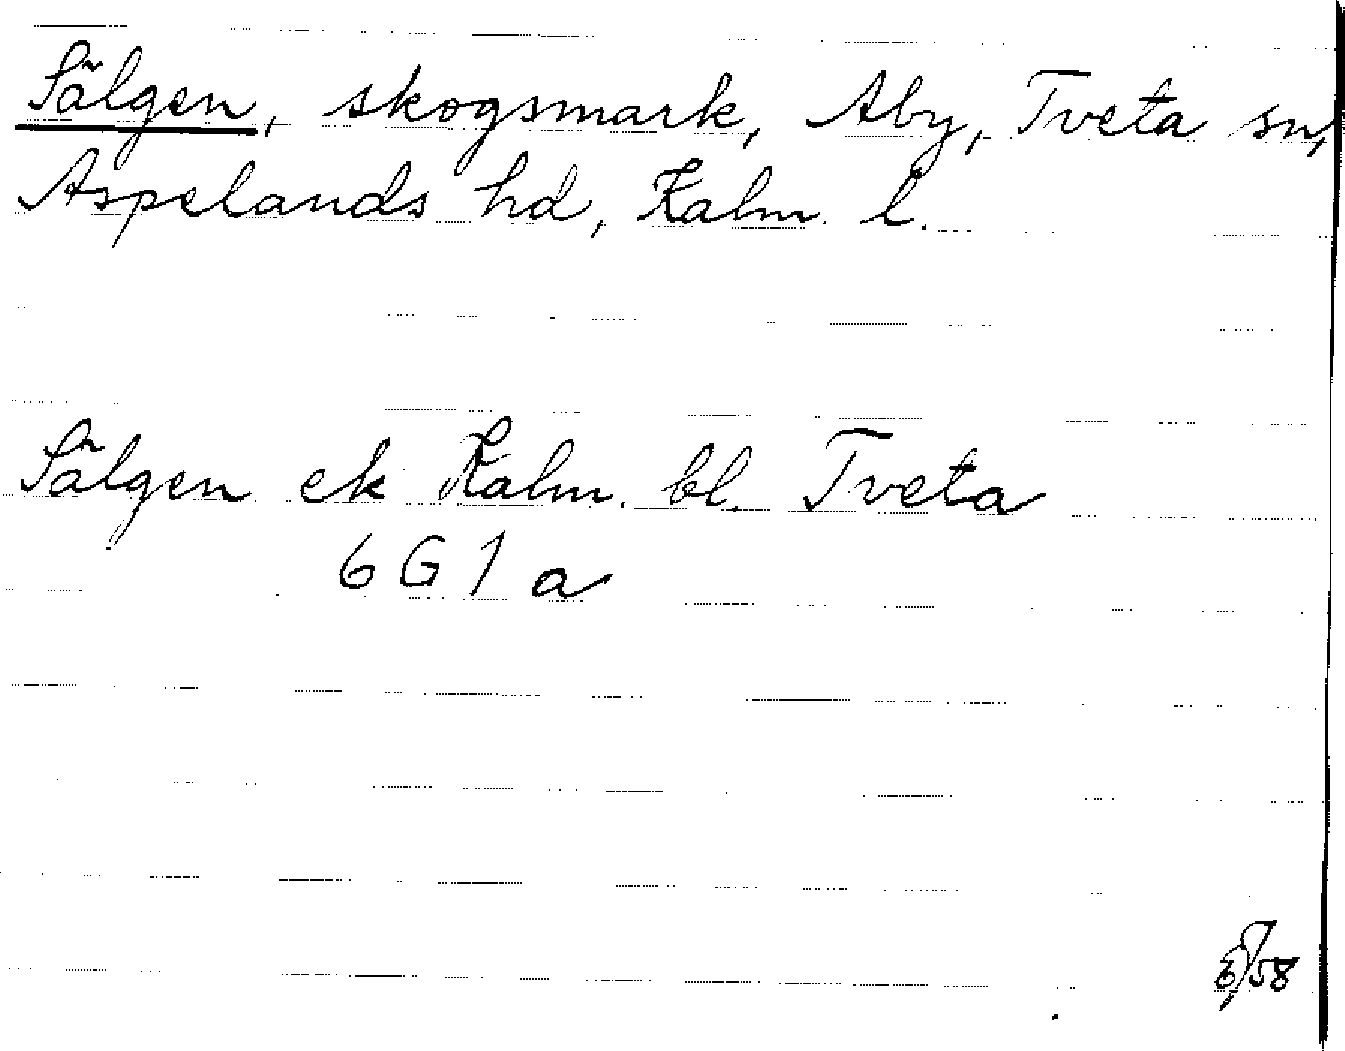 Sälgen, skogsmark, Åby, Tveta sn,
Aspelands hd, Kalm. l.
Sälgen ek Kalm. bl. Tveta
6 G 1 a
/58